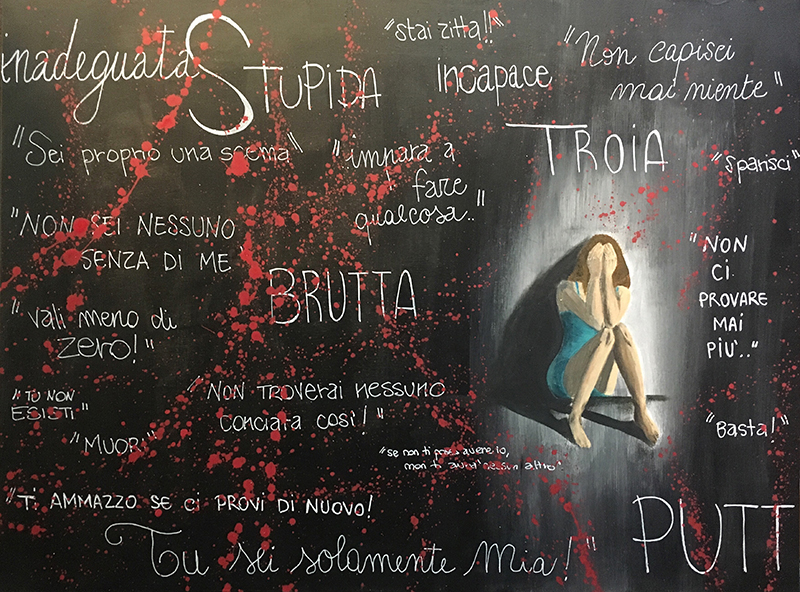 "stai zitta!!"
inadeguata
STUPIDA
incapace
"Non capisci
mai niente"
"Sei proprio una scema"
"impara a
fare
qualcosa.."
TROIA
"Sparisci"
"NON SEI NESSUNO
SENZA DI ME"
"NON
CI
PROVARE
MAI
PIU'.."
BRUTTA
"vali meno di
zero!"
"TU NON
ESISTI"
"NON TROVERAI NESSUNO
CONCIATA COSÌ!"
"MUORI"
"Basta!"
"se non ti posso avere io,
non ti avrà nessun altro"
"TI AMMAZZO SE CI PROVI DI NUOVO!
Tu sei solamente Mia!"
PUTT